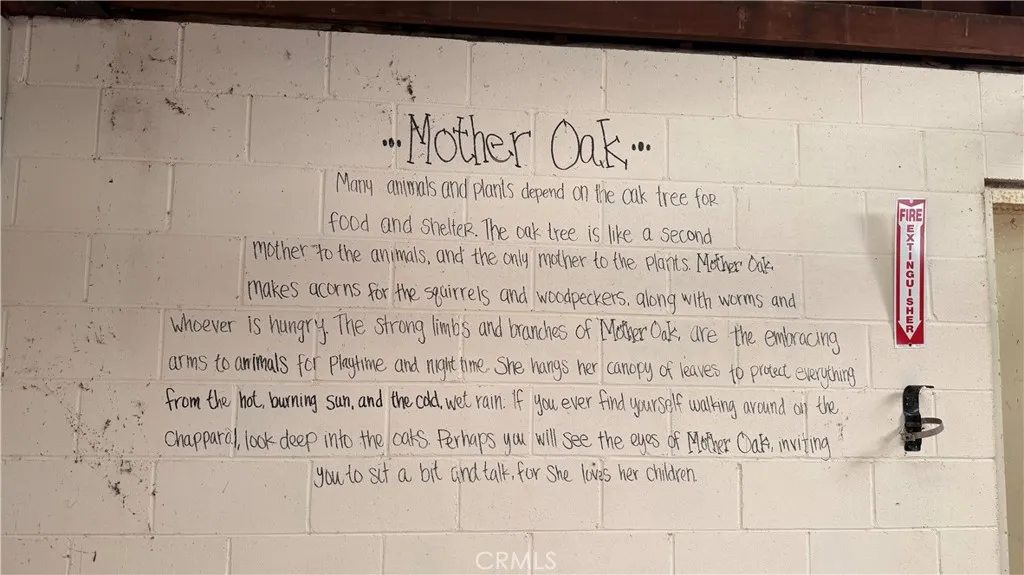 ...Mother Oak...
Many animals and plants depend on the oak tree for
food and shelter. The oak tree is like a second
mother to the animals, and the only mother to the plants. Mother Oak,
makes acorns for the squirrels and woodpeckers, along with worms and
whoever is hungry. The strong limbs and branches of Mother Oak, are the embracing
arms to animals for playtime and night time. She hangs her canopy of leaves to protect everything
from the hot, burning sun, and the cold, wet rain. If you ever find yourself walking around on the
Chapparal, look deep into the oaks. Perhaps you will see the eyes of Mother Oak, inviting
you to sit a bit and talk, for she loves her children.
FIRE
EXTINGUISHER
CRMLS